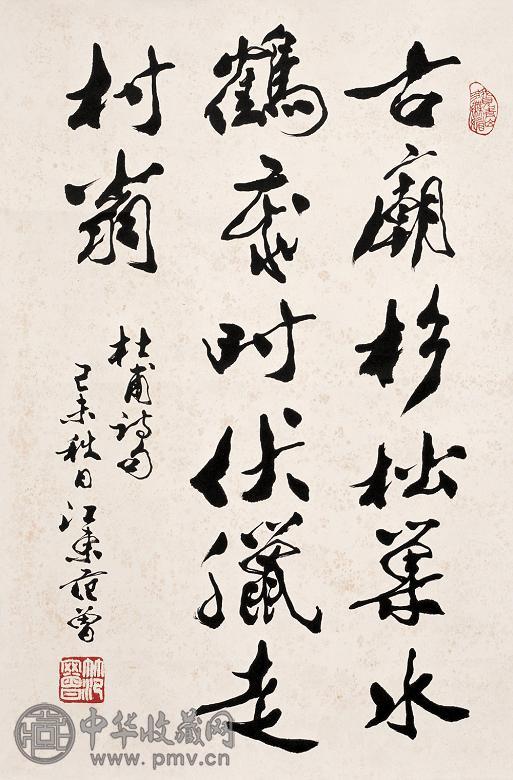 古廟杉松巢水
鶴歲时伏臘走
村翁
杜甫诗句
己未秋日江東范曾
中华收藏网
www.pmv.cn